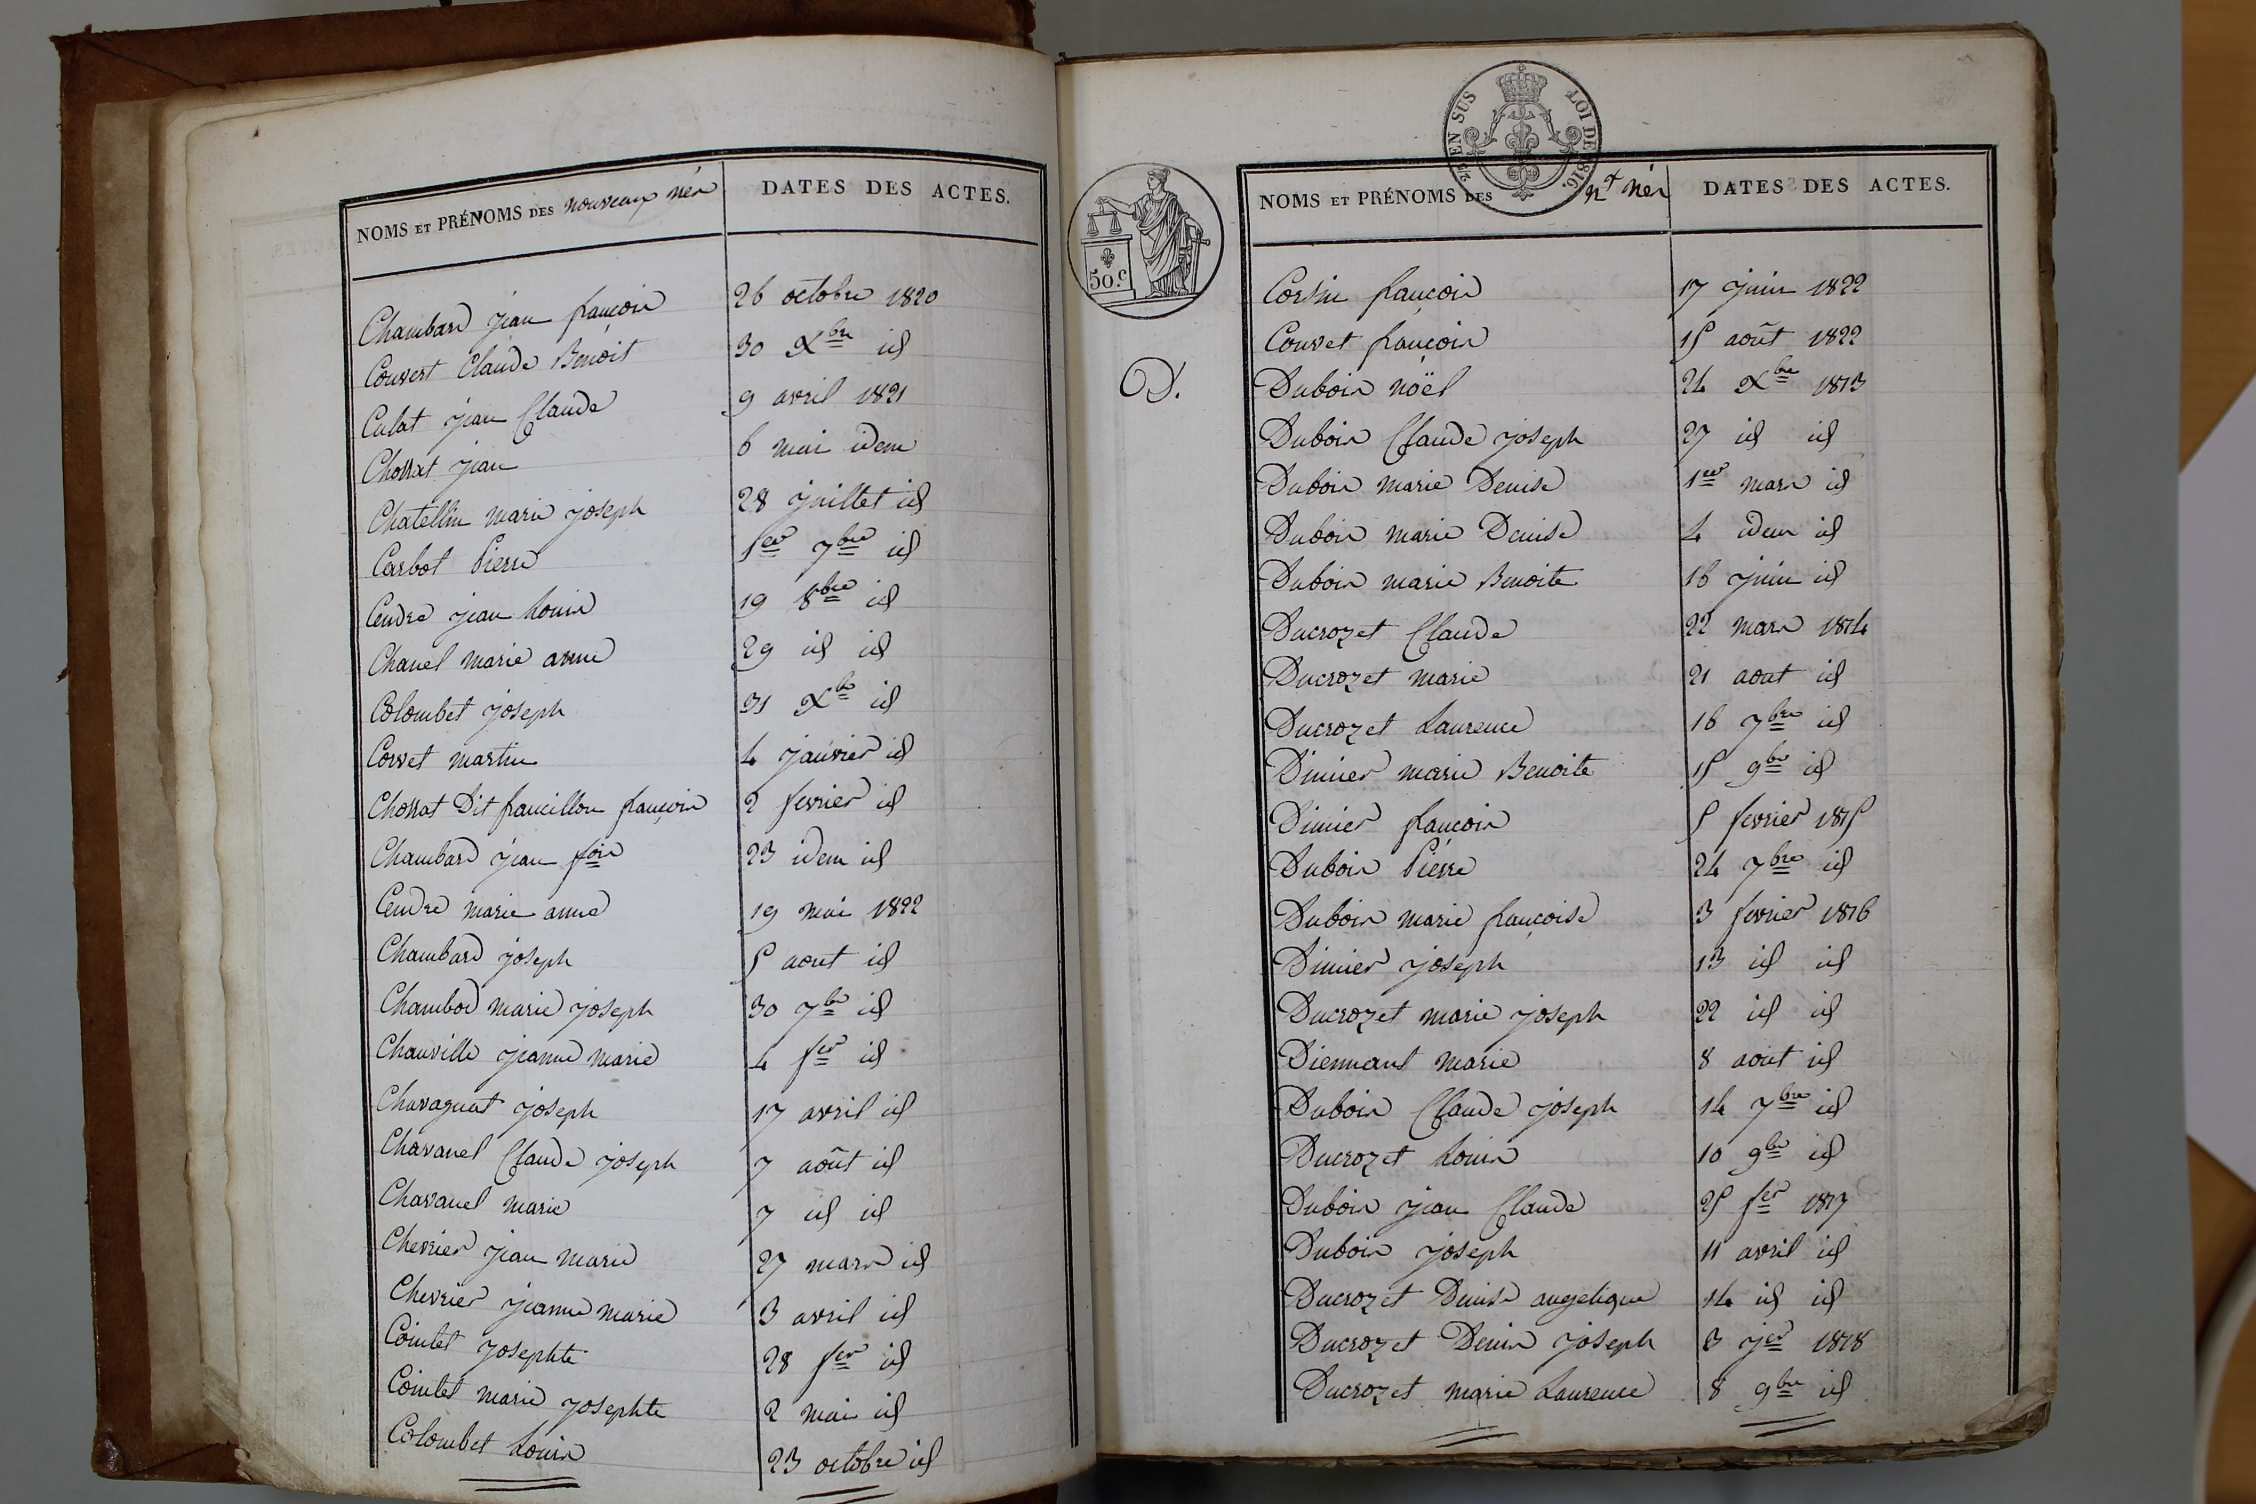 NOMS ET PRÉNOMS DES nouveaux nés DATES DES ACTES.
Chambard jean françois 26 octobre 1820
Couvert Claude Benoit 30 Xbre id
Culat jean Claude 9 avril 1821
Chossat jean 6 mai idem
Chatellin marie joseph 28 juillet id
Carbot Pierre 1er 7bre id
Cendre jean Louis 19 8bre id
Chanel marie anne 29 id id
Colombet joseph 31 Xbre id
Corvet martin 4 janvier id
Chossat Dit francillon françois 2 fevrier id
Chambard jean fois 23 idem id
Cendre marie anne 19 mai 1822
Chambard joseph 5 aout id
Chambod marie joseph 30 7bre id
Chanville jeanne marie 4 fer id
Chavagnat joseph 17 avril id
Chavanel Claude joseph 7 août id
Chavanel marie 7 id id
Chevrier jean marie 27 mars id
Chevrier jeanne marie 3 avril id
Cointet josephte 28 fer id
Cointet marie josephte 2 mai id
Colombet Louis 23 octobre id
2/5 EN SUS LOI DE 1816.
50.c
NOMS ET PRÉNOMS DES nx nés DATES DES ACTES.
Corsin françois 17 juin 1822
Couvet françois 15 août 1822
D.
Dubois noël 24 Xbre 1813
Dubois Claude joseph 27 id id
Dubois marie Denise 1er mars id
Dubois marie Denise 4 idem id
Dubois marie Benoite 16 juin id
Ducrozet Claude 22 mars 1814
Ducrozet marie 21 aout id
Ducrozet Laurence 16 7bre id
Dimier marie Benoite 15 9bre id
Dimier françois 5 fevrier 1815
Dubois Pierre 24 7bre id
Dubois marie françoise 3 fevrier 1816
Dimier joseph 13 id id
Ducrozet marie joseph 22 id id
Diennant marie 8 aout id
Dubois Claude joseph 14 7bre id
Ducrozet Louis 10 9bre id
Dubois jean Claude 25 fer 1817
Dubois joseph 11 avril id
Ducrozet Denise angelique 14 id id
Ducrozet Denis joseph 3 jer 1818
Ducrozet marie Laurence 8 9bre id